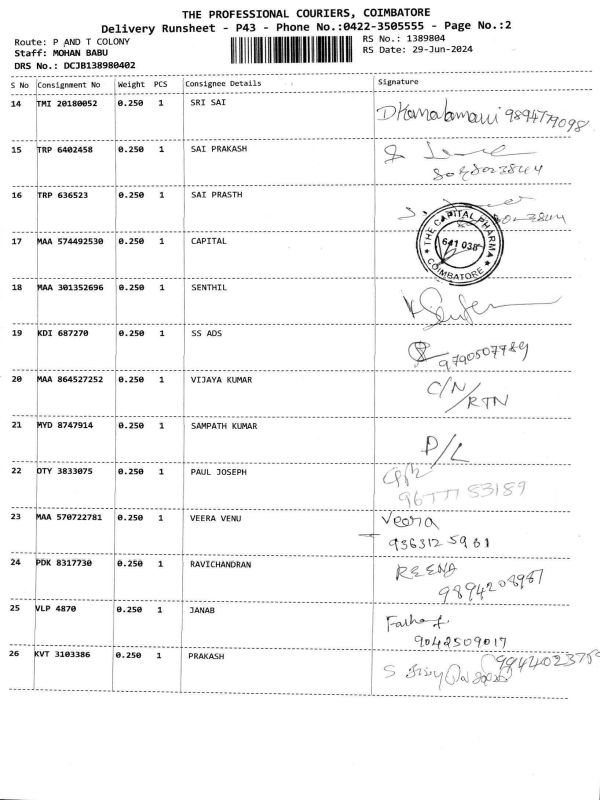 THE PROFESSIONAL COURIERS, COIMBATORE
Delivery Runsheet - P43 - Phone No.:0422-3505555 - Page No.:2
Route: P AND T COLONY
RS No.: 1389804
Staff: MOHAN BABU
RS Date: 29-Jun-2024
DRS No.: DCJB138980402
S No Consignment No Weight PCS Consignee Details Signature
14 TMI 20180052 0.250 1 SRI SAI
15 TRP 6402458 0.250 1 SAI PRAKASH
16 TRP 636523 0.250 1 SAI PRASTH
17 MAA 574492530 0.250 1 CAPITAL
THE CAPITAL PHARMA
641 038
COIMBATORE
18 MAA 301352696 0.250 1 SENTHIL
19 KDI 687270 0.250 1 SS ADS
9790507789
20 MAA 864527252 0.250 1 VIJAYA KUMAR C/N
/RTN
21 MYD 8747914 0.250 1 SAMPATH KUMAR D/L
22 OTY 3833075 0.250 1 PAUL JOSEPH
9677783189
23 MAA 570722781 0.250 1 VEERA VENU Veera
9363125961
24 PDK 8317730 0.250 1 RAVICHANDRAN REENA
9894208987
25 VLP 4870 0.250 1 JANAB
9042509017
26 KVT 3103386 0.250 1 PRAKASH